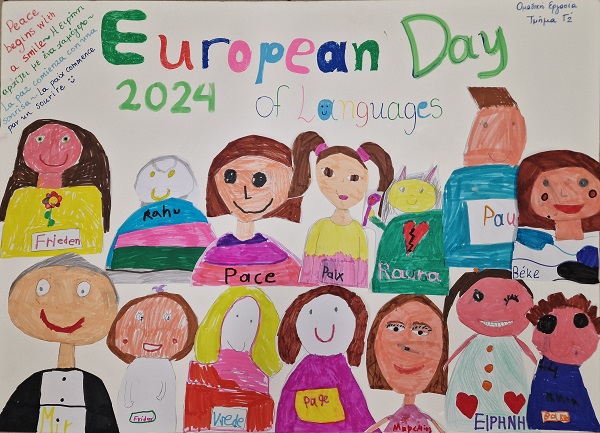 Peace
begins with
a smile~Η Ειρήνη
αρχίζει με ένα χαμόγελο~
La paz comienza con una
sonrisa~La paix commence
par un sourire
Ομαδική Εργασία
Τμήμα Γ2
European Day
2024 of Languages
Frieden
Rahu
Pace
Paix
Rauha
Pau
Béke
Mir
Vrede
page
ΕΙΡΗΝΗ